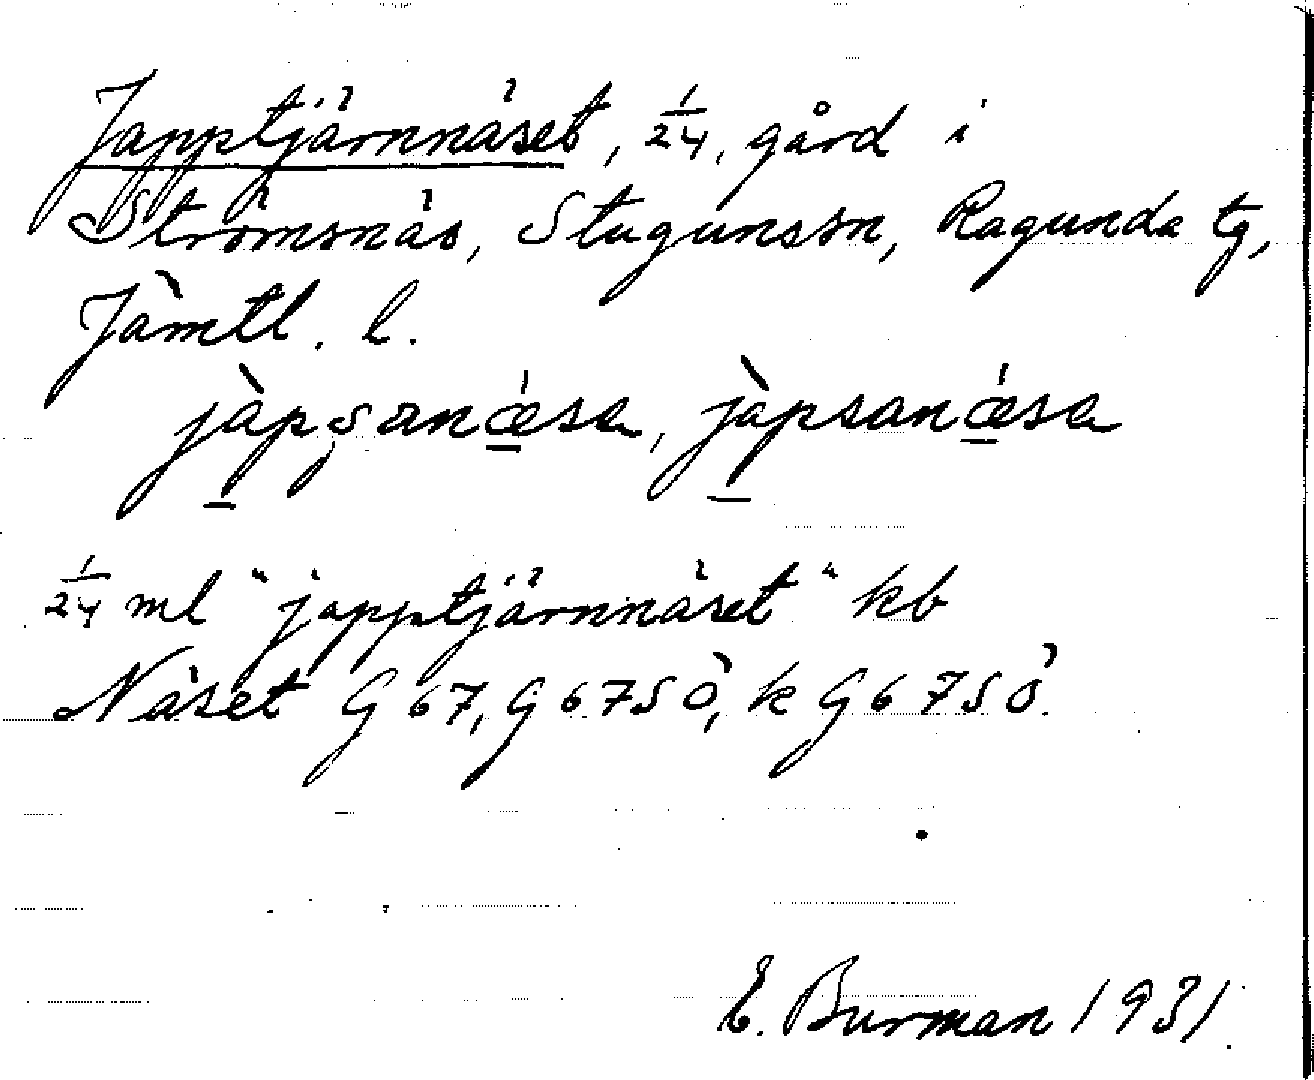 Japptjärnnäset, 1/24, gård i
Strömsnäs, Stuguns sn, Ragunda tg,
Jämtl. l.
jàpsanǽsa, jàpsanǽsa
1/24 ml "japptjärnnäset" kb
Näset G 67, G 67 SÖ, k G 67 SÖ.
E. Burman 1931.